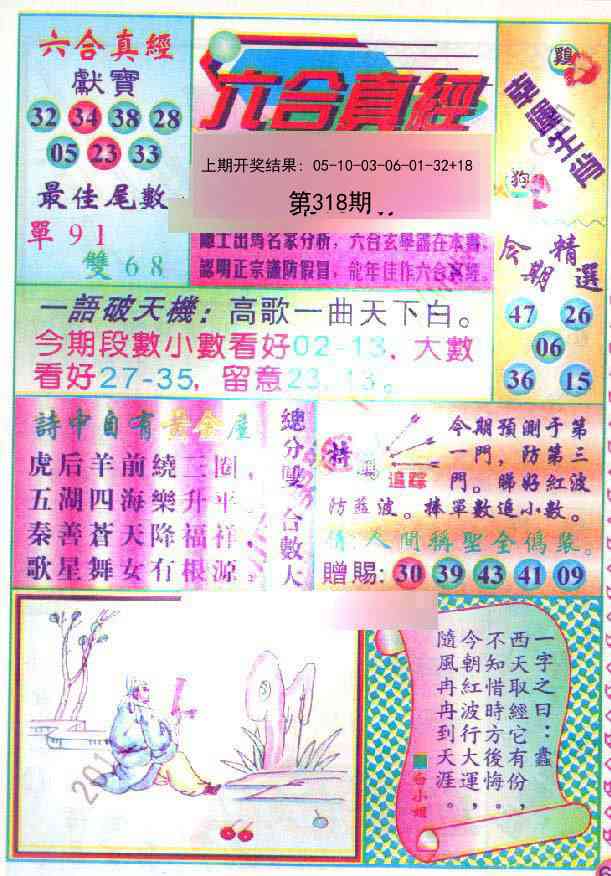 六合真經
獻寶
32 34 38 28
05 23 33
最佳尾數
單91
雙68
六合真經
上期开奖结果：05-10-03-06-01-32+18
第318期
出馬名家分析，六合玄學
認明正宗謹防假冒，龍年佳作六合真經。
鷄
幸運生肖
狗
今期精選
47 26
06
36 15
一語破天機：高歌一曲天下白。
今期段數小數看好02-13、大數
看好27-35，留意23.13。
詩中自有黃金屋
虎后羊前繞三圈，
五湖四海樂升平。
秦善蒼天降福祥，
歌星舞女有根源。
總分 合數大
特 追踪
今期預測于第
一門，防第三
門。睇好紅波
防藍波。棒單數追小數。
人間稱聖全偽裝。
贈賜：30 39 43 41 09
一字之曰：蠢
西天取經它有份，
不知惜時方後悔。
今朝紅波行大運，
隨風冉冉到天涯。
白小姐